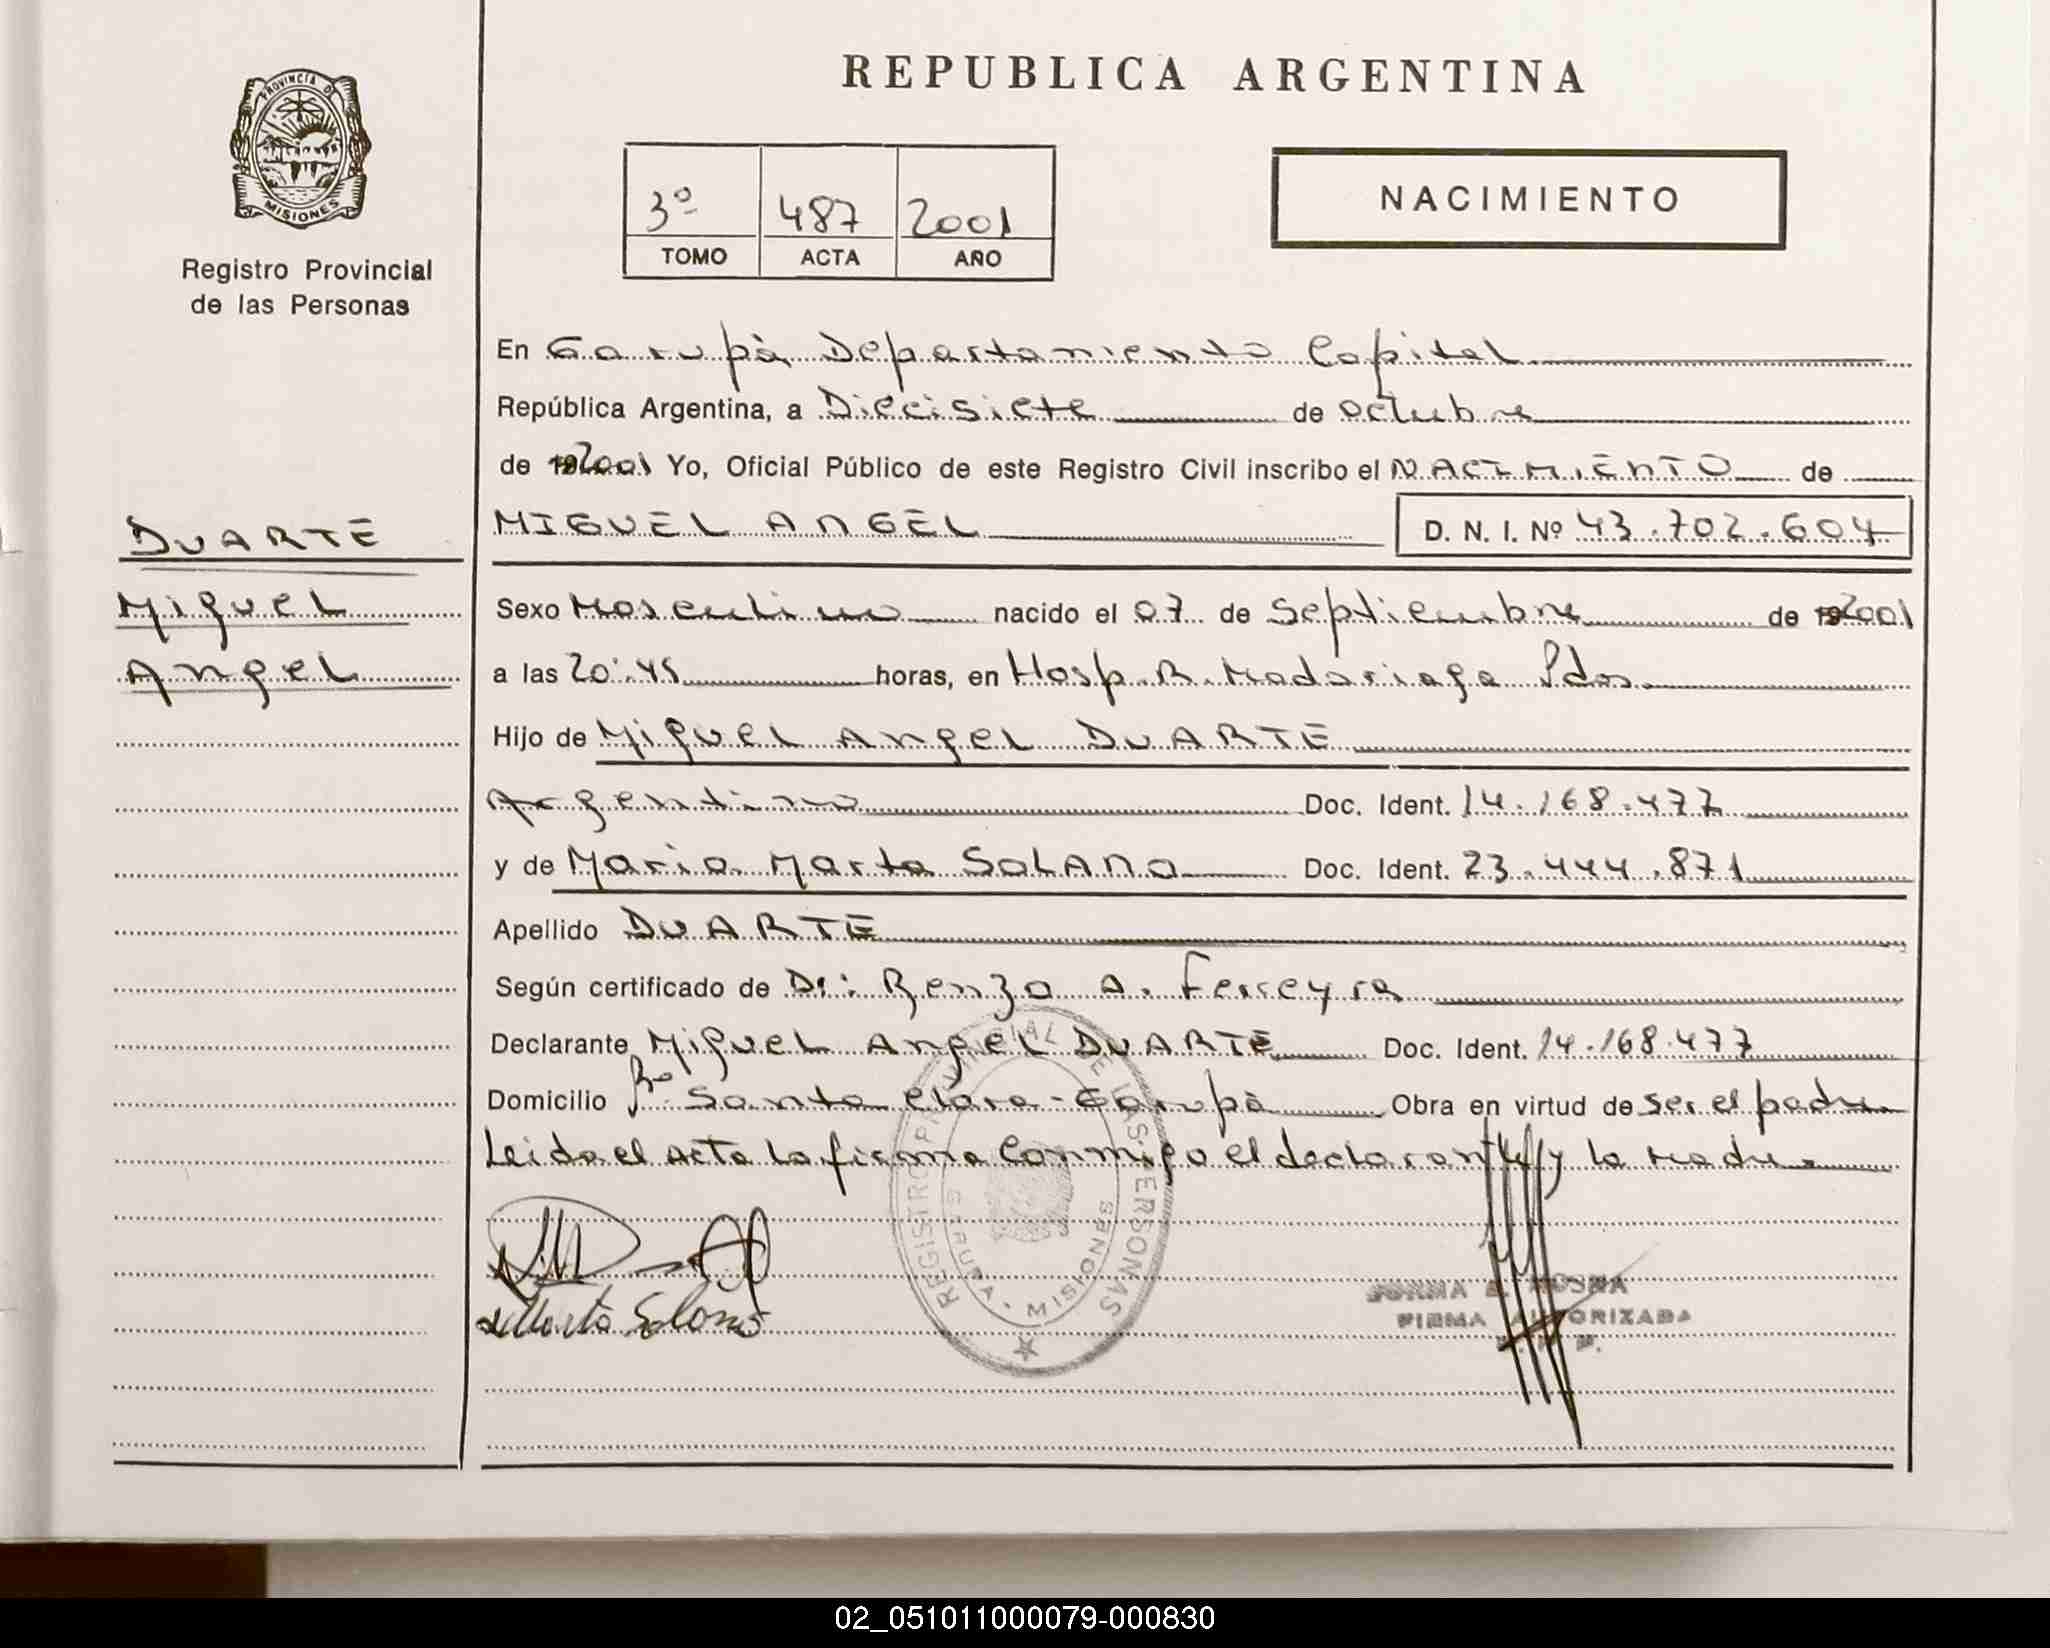 PROVINCIA DE
MISIONES
Registro Provincial
de las Personas
REPUBLICA ARGENTINA
3º 487 2001
TOMO ACTA AÑO
NACIMIENTO
En Garupà Departamento Capital
República Argentina, a Diecisiete de octubre
de 2001 Yo, Oficial Público de este Registro Civil inscribo el NACIMIENTO de
DUARTE
MIGUEL ANGEL D. N. I. Nº 43.702.604
Miguel
Sexo Masculino nacido el 07 de Septiembre de 2001
Angel
a las 20:45 horas, en Hosp. R. Madariaga Pdas.
Hijo de Miguel Angel DUARTE
Argentino Doc. Ident. 14.168.477
y de Maria Marta SOLANO Doc. Ident. 23.444.871
Apellido DUARTE
Según certificado de Dr: Renzo A. Ferreyra
Declarante Miguel Angel DUARTE Doc. Ident. 14.168.477
Domicilio Bº Santa Clara - Garupà Obra en virtud de ser el padre
Leida el Acta la firma conmigo el declarante y la Madre
REGISTRO PROVINCIAL DE LAS PERSONAS
GARUPA · MISIONES
Marta Solano
NORMA
FIRMA AUTORIZADA
02_051011000079-000830